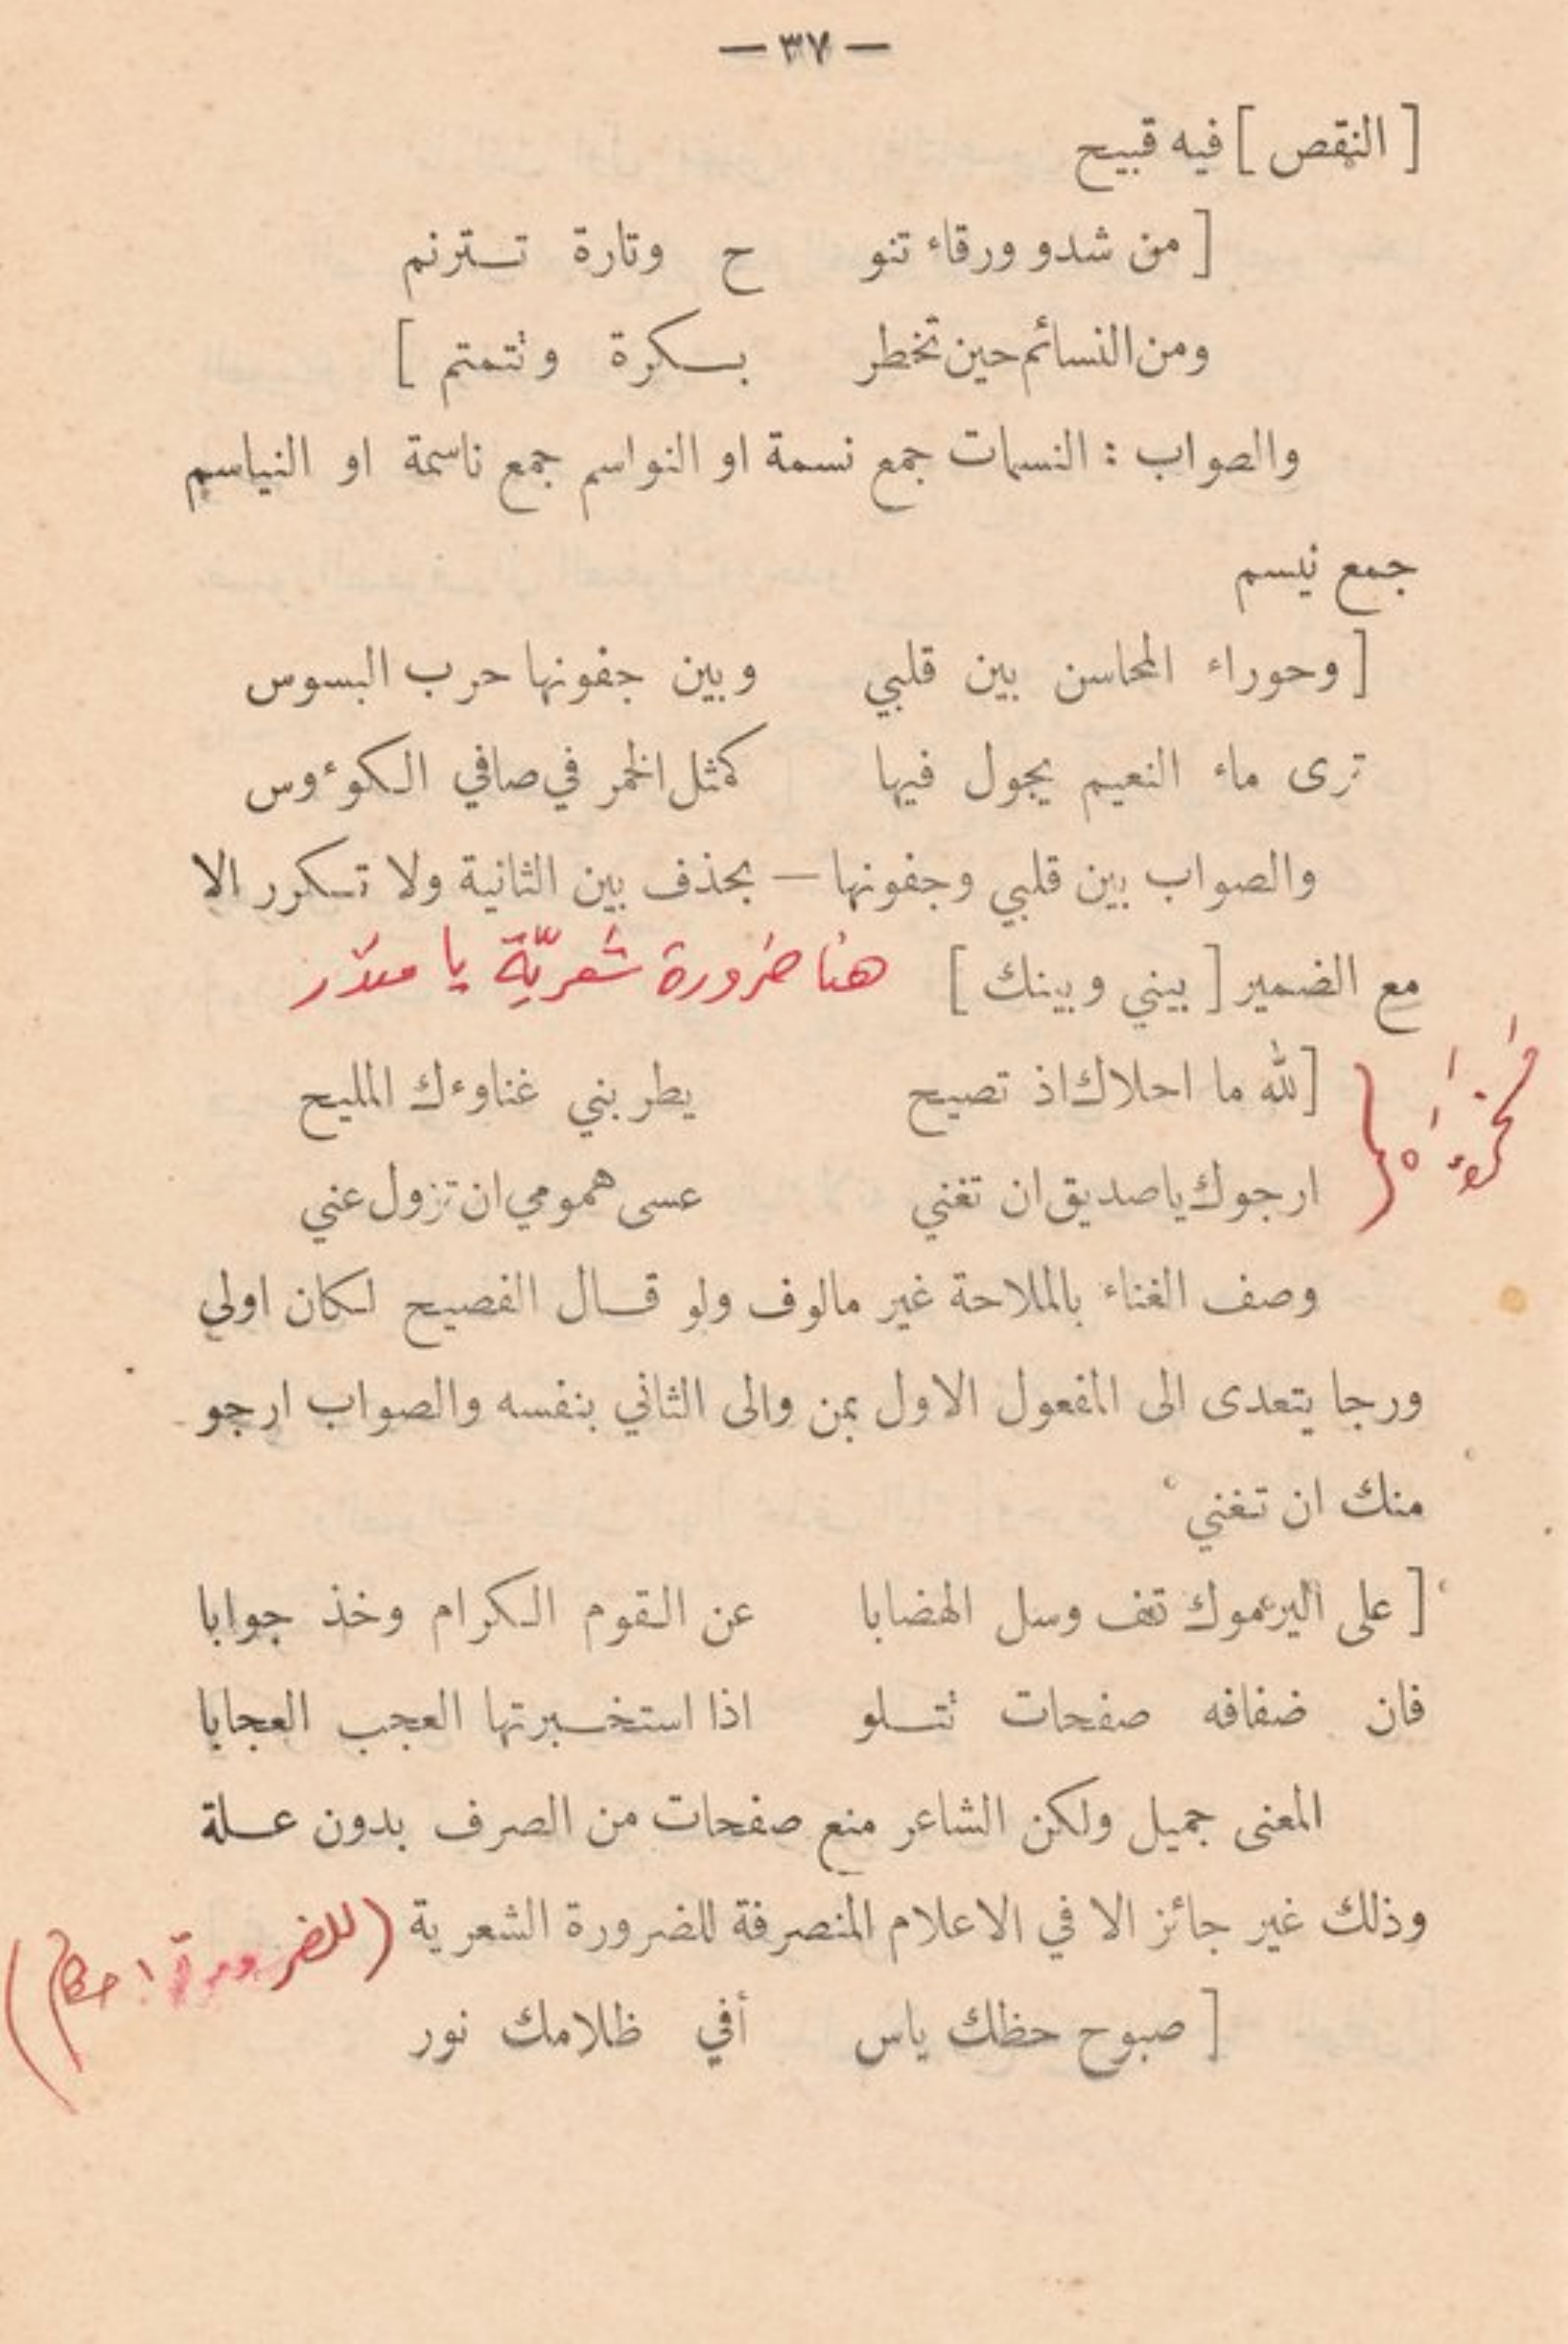 — ٣٧ —
[ النقص ] فيه قبيح
[ من شدو ورقاء تنو ح وتارة تسترنم
ومن النسائم حين تخطر بسكرة وتتمتم ]
والصواب : النسمات جمع نسمة او النواسم جمع ناسمة او النياسم
جمع نيسم
[ وحوراء المحاسن بين قلبي وبين جفونها حرب البسوس
ترى ماء النعيم يجول فيها كمثل الخمر في صافي الكوءوس
والصواب بين قلبي وجفونها — بحذف بين الثانية ولا تكرر الا
مع الضمير [ بيني وبينك ] هنا ضرورة شعريّة يا
[ لله ما احلاك اذ تصيح يطربني غناوءك المليح
ارجوك يا صديق ان تغني عسى همومي ان تزول عني
وصف الغناء بالملاحة غير مالوف ولو قال الفصيح لكان اولى
ورجا يتعدى الى المفعول الاول بمن والى الثاني بنفسه والصواب ارجو
منك ان تغني
[ على اليرموك قف وسل الهضابا عن القوم الكرام وخذ جوابا
فان ضفافه صفحات تتلو اذا استخبرتها العجب العجابا
المعنى جميل ولكن الشاعر منع صفحات من الصرف بدون علة
وذلك غير جائز الا في الاعلام المنصرفة للضرورة الشعرية (للضرورة احكام)
[ صبوح حظك ياس أفي ظلامك نور